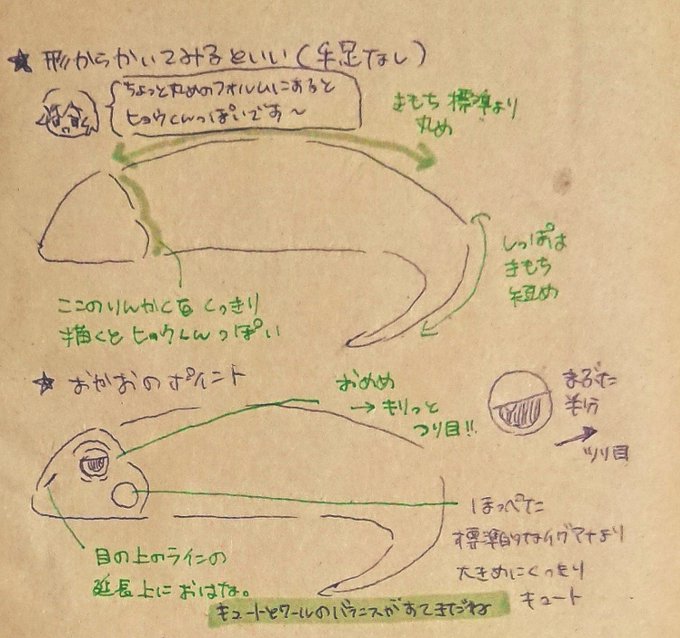 ★ 形からかいてみるといい(手足なし)
ちょっと丸めのフォルムにすると
ヒョウくんっぽいです〜
きもち標準より
丸め
しっぽは
きもち
短め
ここのりんかくをくっきり
描くとヒョウくんっぽい
★ おかおのポイント
おめめ
→ キリっと
つり目!!
まぶた
半分
ツリ目
ほっぺた
標準的なイグアナより
大きめにくっきり
キュート
目の上のラインの
延長上におはな。
キュートとクールのバランスがすてきだね